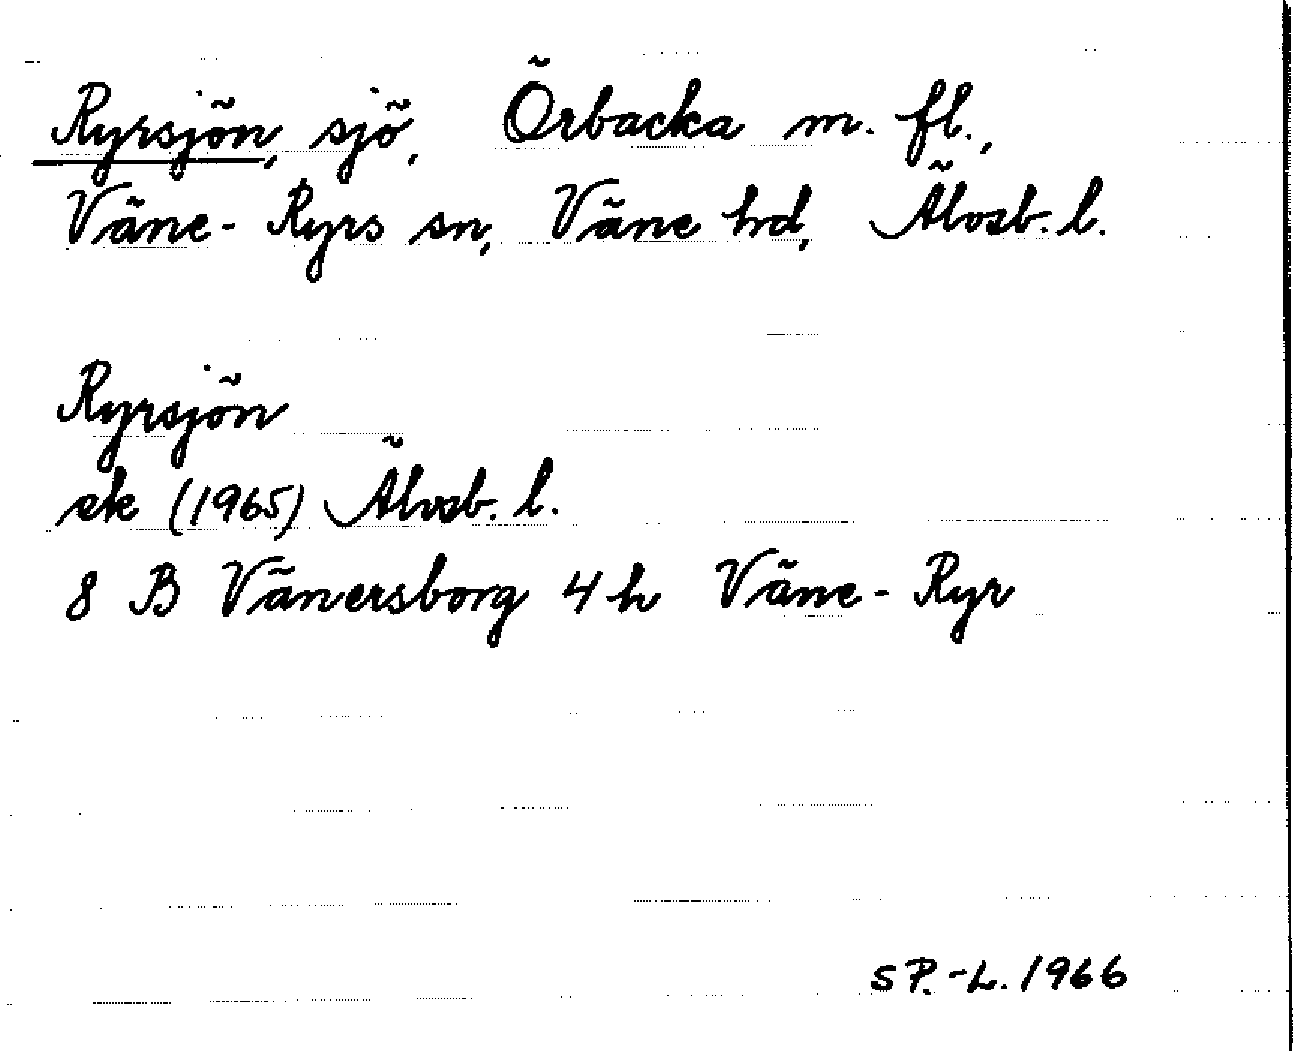 Ryrsjön, sjö, Örbacka m. fl.,
Väne-Ryrs sn, Väne hd, Älvsb. l.
Ryrsjön
ek (1965) Älvsb. l.
8 B Vänersborg 4 h Väne-Ryr
S P.-L. 1966